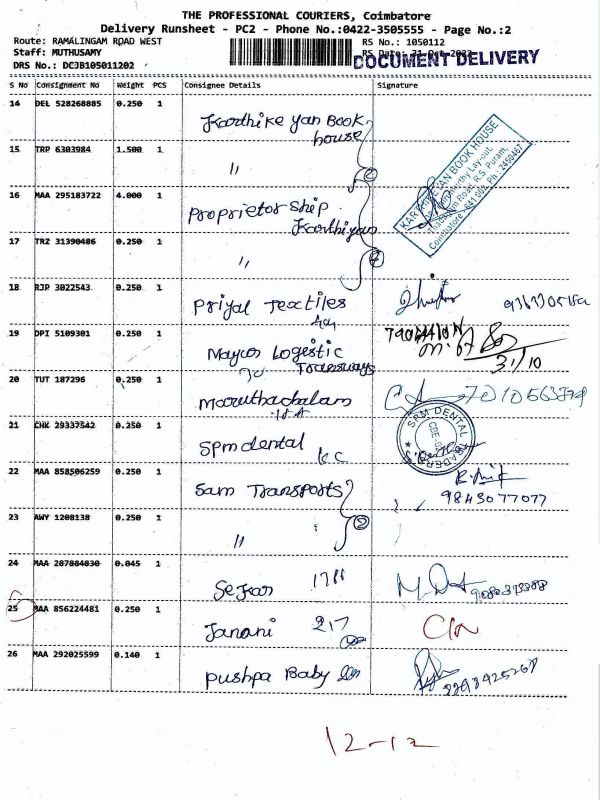 THE PROFESSIONAL COURIERS, Coimbatore
Delivery Runsheet - PC2 - Phone No.:0422-3505555 - Page No.:2
Route: RAMALINGAM ROAD WEST
RS No.: 1050112
Staff: MUTHUSAMY
DOCUMENT DELIVERY
DRS No.: DC3B105011202
S No Consignment No Weight PCS Consignee Details Signature
14 DEL 528268885 0.250 1 Karthike yan Book house
15 TRP 6303984 1.500 1 "
KARTHIKEYAN BOOK HOUSE
Coimbatore - 641 002. Ph : 2450467
16 MAA 295183722 4.000 1 Proprietor Ship Karthiyan
17 TRZ 31390486 0.250 1 "
18 RJP 3022543 0.250 1 Priyal Textiles
19 DPI 5109301 0.250 1 Logistic
31/10
20 TUT 187296 0.250 1 Maruthachalam
21 CHK 29337542 0.250 1 Spm dental
SPM DENTAL
22 MAA 858506259 0.250 1 Sam Transports
9843077077
23 AWY 1208138 0.250 1 "
24 MAA 287884830 0.045 1 Sekar
25 MAA 856224481 0.250 1 Janani 217
26 MAA 292025599 0.140 1 Pushpa Baby
12-12